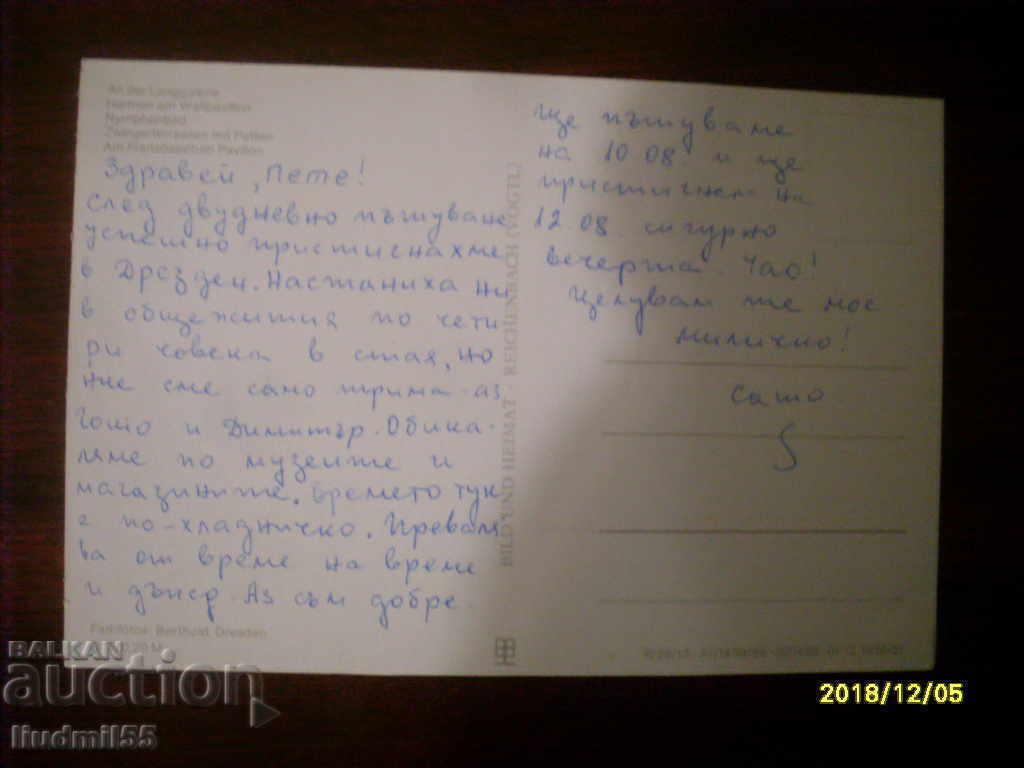 An der Langgalerie
Hermen am Wallpavillon
Nymphenbad
Zwingerterrassen mit Putten
Am Französischen Pavillon
Здравей, Пете!
След двудневно пътуване
успешно пристигнахме
в Дрезден. Настаниха ни
в общежития по чети
ри човека в стая, но
ние сме само трима - аз
Гошо и Димитър. Обика-
ляме по музеите и
магазините. Времето тук
е по-хладничко. Преваля
ва от време на време
и дъжд. Аз съм добре.
Farbfotos: Berthold, Dresden
BILD UND HEIMAT · REICHENBACH (VOGTL)
Ще пътуваме
на 10 08. и ще
пристигнем на
12.08. сигурно
вечерта. Чао!
Целувам те мое
миличко!
Сашо
BALKAN
auction
liudmil55
2018/12/05